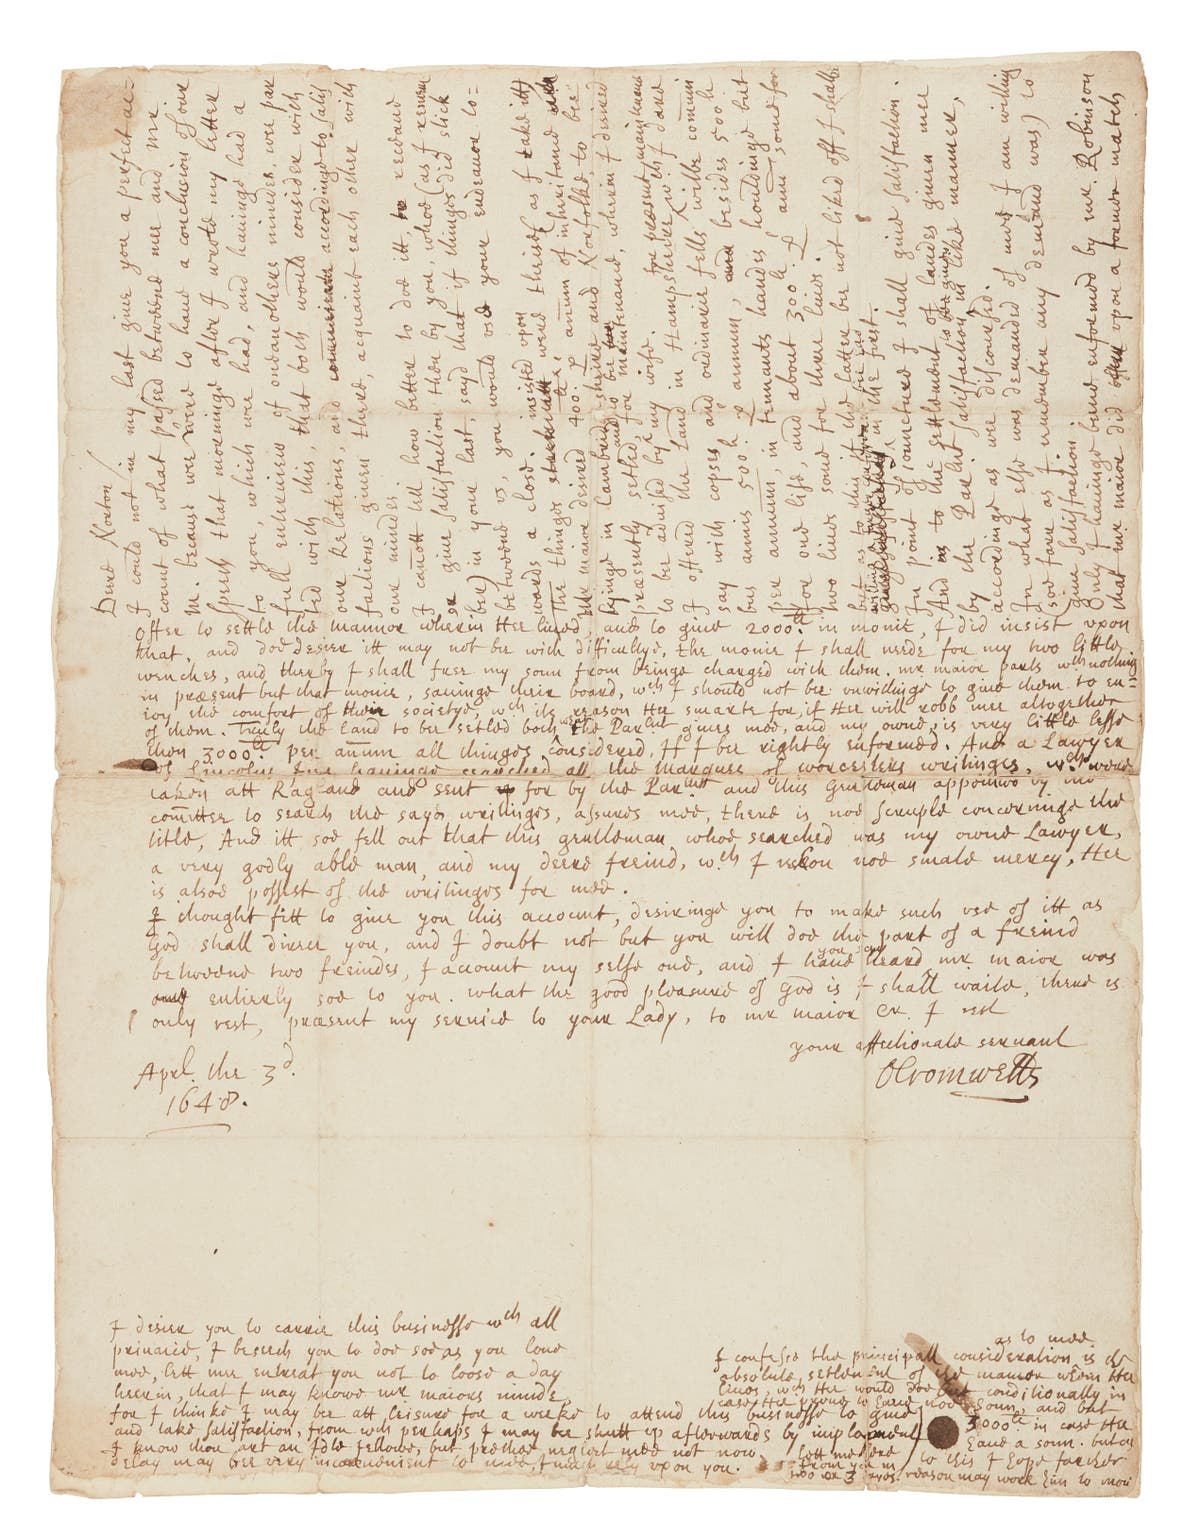 Deere Norton/
I could not in my last give you a perfect ac=
count of what passed betweene mee and Mr
M. because wee were to have a conclusion of our
speech that morninge after I wrote my letter
to you, which wee had, and havinge had a
full enteruiew of one anothers mindes, wee par
ted with this, that both would consider with
our relations, and accordinge to satis
factions given there, acquaint each other with
our mindes.
I cannott tell how better to doe itt, to receave
or give satisfaction then by you, whoe (as I remem
ber) in your last, sayd that if thinges did stick
betweene us, you would use your endeavor to=
wards a close.
The thinges insisted upon were these (as I take itt)
Mr maior desired 400 l p annum of inheritance
lyinge in Cambridgshire and Norfolke, to bee
presently setled and to bee for maintenance, wherin I desired
to bee advised by my wife.
I offered the Land in Hampshire for present maintenance wch I dare
say with copses and ordinarie fells wilbe comuni
bus annis 500 l p annum, besides 500 l
per annum, in tennants handes houldinge but
for one life, and about 300 l p ann some for
two lives some for three lives.
but as to this if the latter bee not liked off I shalbe
willing in the first.
In point of Joyncture I shall give satisfaction.
And as to the settlement of landes given mee
by the Parlnt satisfaction to bee given in like manner,
accordinge as wee discoursed.
In what else was demanded of mee I am willing
(soe farr as I remember any demand was) to
give satisfaction.
Only I havinge beene enformed by mr Robinson
that mr maior did upon a former match
offer to settle the mannor wherein Hee lived, and to give 2000 l in monie, I did insist upon
that, and doe desier itt may not bee with difficultye, the monie I shall neede for my two little
wenches, and therby I shall free my sonn from beinge charged with them. mr maior parts wth nothing
in præsent but that monie, savinge their board, wch I should not bee unwillinge to give them to en=
ioy the comfort of their societye, wch its reason Hee smarte for if Hee will robb mee altogether
of them. Truly the land to bee settled both wt the Parlnt gives mee, and my owne, is very little lesse
then 3000 l per annum all thinges considered, If I bee rightly enformed. And a Lawyer
of Lincolns Inn havinge searched all the Marques of worcesters writinges, wch were
taken att Ragland and sent for by the Parlnt and this Gentleman appointed by the
comittee to search the sayd writinges, assures mee, there is noe scruple concerninge the
title, And itt soe fell out that this gentleman whoe searched was my owne Lawyer,
a very godly able man, and my deere freind, wch I reckon noe smale mercy, Hee
is alsoe possest of the writinges for mee.
I thought fitt to give you this account, desiringe you to make such use of itt as
God shall direct you, and I doubt not but you will doe the part of a freind
betweene two freindes, I account my selfe one, and I have heard you say mr maior was
entirely soe to you. what the good pleasure of God is I shall waite, there is
only rest, præsent my service to your Lady, to mr maior &c. I rest
your affectionate servant
O Cromwell
Aprl. the 3d.
1648.
I desier you to carrie this businesse wth all
privacie, I beseech you to doe soe as you love
mee, lett mee entreat you not to loose a day
herein, that I may knowe mr maiors minde
for I thinke I may bee att leisure for a weeke to attend this businesse to give
and take satisfaction, from wch perhaps I may bee shutt up afterwards by imployment
I know thou art an Idle fellowe, but prethee neglect mee not now
delay may bee very inconvenient to mee, I much rely upon you.
lett mee heere
from you in
two or 3 dayes.
I confesse the principall consideration as to mee is the
absolute settlement of the manor wherin Hee
lives, wch Hee would doe but conditionally in
case Hee prove to have noe sonn, and but
3000 l in case Hee
have a sonn. but as
to this I hope farther
reason may work him to more